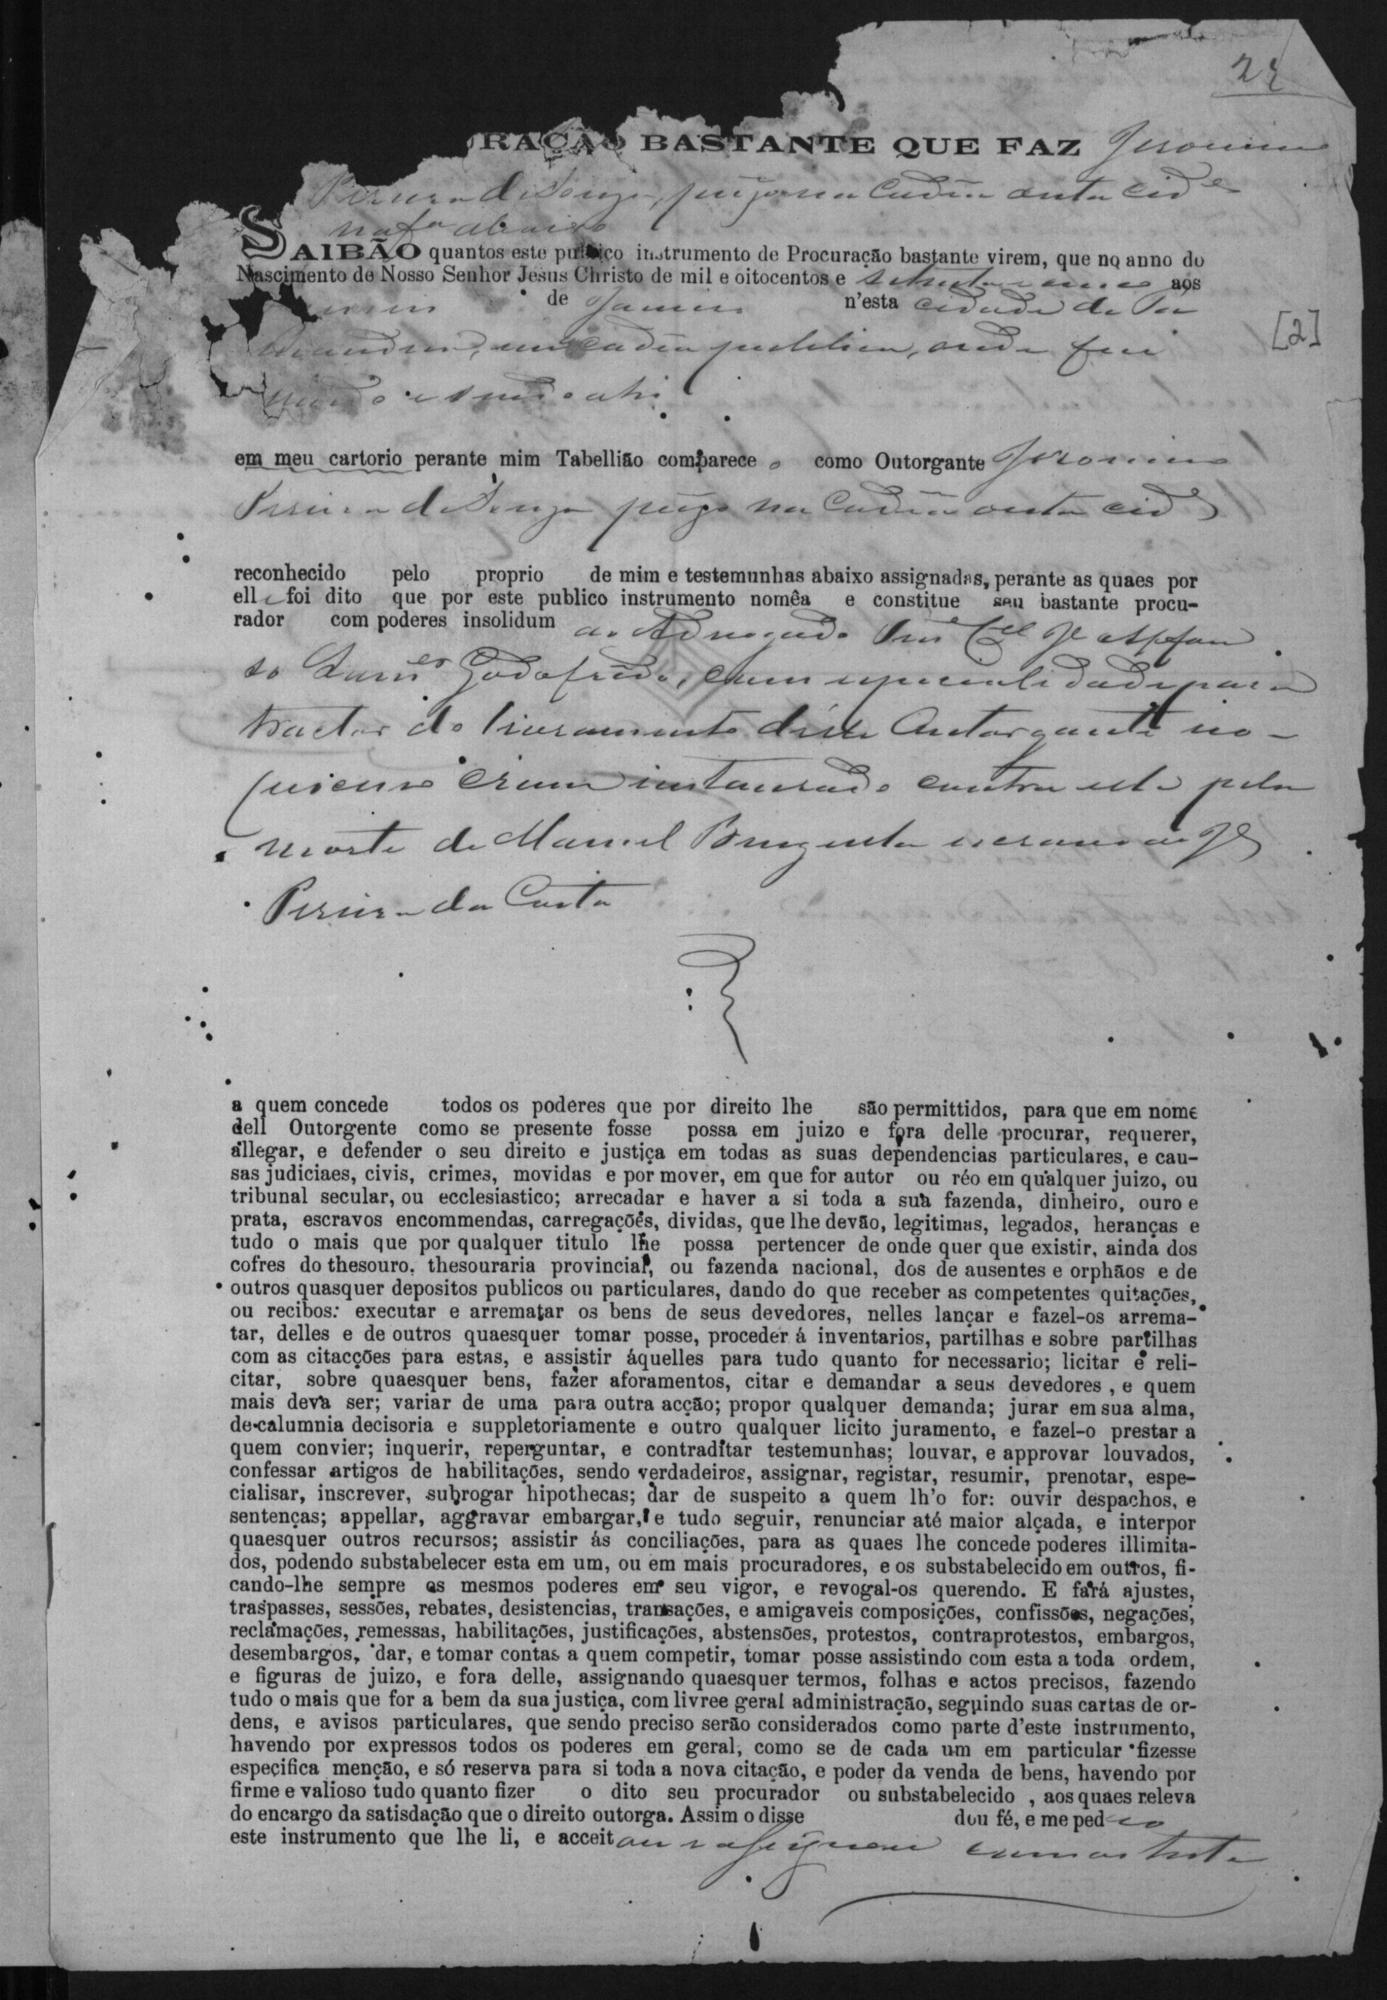 22
RAÇÃO BASTANTE QUE FAZ Jeronimo
Pereira de Souza, prezo na Cadêa desta cid.e
na f.a abaixo
SAIBÃO quantos este publico instrumento de Procuração bastante virem, que no anno do
Nascimento de Nosso Senhor Jesus Christo de mil e oitocentos e setenta e aos
de Janeiro n'esta cidade de
na cadêa publica, onde fui
vindo e sendo ahi
[2]
em meu cartorio perante mim Tabellião comparece o como Outorgante Jeronimo
Pereira de Souza prezo na Cadêa desta cid.e
reconhecido pelo proprio de mim e testemunhas abaixo assignadas, perante as quaes por
elle foi dito que por este publico instrumento nomêa e constitue seu bastante procu-
rador com poderes insolidum ao Advogado J.e Affon
so Godofredo, com especialidade para
tractar do livramento delle Outorgante no
crime instaurado contra elle pela
morte de Manoel escravo de J.e
Pereira da Costa
a quem concede todos os poderes que por direito lhe são permittidos, para que em nome
dell Outorgente como se presente fosse possa em juizo e fora delle procurar, requerer,
allegar, e defender o seu direito e justiça em todas as suas dependencias particulares, e cau-
sas judiciaes, civis, crimes, movidas e por mover, em que for autor ou réo em qualquer juizo, ou
tribunal secular, ou ecclesiastico; arrecadar e haver a si toda a sua fazenda, dinheiro, ouro e
prata, escravos encommendas, carregações, dividas, que lhe devão, legitimas, legados, heranças e
tudo o mais que por qualquer titulo lhe possa pertencer de onde quer que existir, ainda dos
cofres do thesouro, thesouraria provincial, ou fazenda nacional, dos de ausentes e orphãos e de
outros quasquer depositos publicos ou particulares, dando do que receber as competentes quitações,
ou recibos: executar e arrematar os bens de seus devedores, nelles lançar e fazel-os arrema-
tar, delles e de outros quaesquer tomar posse, proceder á inventarios, partilhas e sobre partilhas
com as citacções para estas, e assistir áquelles para tudo quanto for necessario; licitar e reli-
citar, sobre quaesquer bens, fazer aforamentos, citar e demandar a seus devedores , e quem
mais deva ser; variar de uma para outra acção; propor qualquer demanda; jurar em sua alma,
de calumnia decisoria e suppletoriamente e outro qualquer licito juramento, e fazel-o prestar a
quem convier; inquerir, reperguntar, e contraditar testemunhas; louvar, e approvar louvados,
confessar artigos de habilitações, sendo verdadeiros, assignar, registar, resumir, prenotar, espe-
cialisar, inscrever, subrogar hipothecas; dar de suspeito a quem lh'o for: ouvir despachos, e
sentenças; appellar, aggravar embargar, e tudo seguir, renunciar até maior alçada, e interpor
quaesquer outros recursos; assistir ás conciliações, para as quaes lhe concede poderes illimita-
dos, podendo substabelecer esta em um, ou em mais procuradores, e os substabelecido em outros, fi-
cando-lhe sempre os mesmos poderes em seu vigor, e revogal-os querendo. E fará ajustes,
traspasses, sessões, rebates, desistencias, transações, e amigaveis composições, confissões, negações,
reclamações, remessas, habilitações, justificações, abstensões, protestos, contraprotestos, embargos,
desembargos, dar, e tomar contas a quem competir, tomar posse assistindo com esta a toda ordem,
e figuras de juizo, e fora delle, assignando quaesquer termos, folhas e actos precisos, fazendo
tudo o mais que for a bem da sua justiça, com livre e geral administração, seguindo suas cartas de or-
dens, e avisos particulares, que sendo preciso serão considerados como parte d'este instrumento,
havendo por expressos todos os poderes em geral, como se de cada um em particular fizesse
especifica menção, e só reserva para si toda a nova citação, e poder da venda de bens, havendo por
firme e valioso tudo quanto fizer o dito seu procurador ou substabelecido , aos quaes releva
do encargo da satisdação que o direito outorga. Assim o disse dou fé, e me pedio
este instrumento que lhe li, e acceitou e assignou com as teste